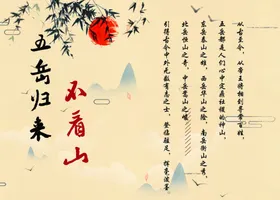 五岳归来
不看山
从古至今，从帝王将相到寻常百姓，
五岳都是人们心中定鼎社稷的神山。
东岳泰山之雄，西岳华山之险，南岳衡山之秀，
北岳恒山之奇，中岳嵩山之峻，
引得古今中外无数有志之士，登临足，挥毫泼墨。